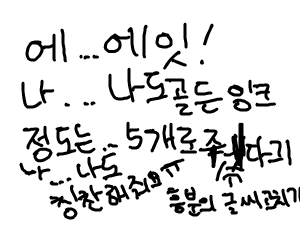 에...에잇!
나...나도골든잉크
정도는..5개로주다리
나...나도
칭찬해줘요ㅠㅠ
흥분의 글씨고치기